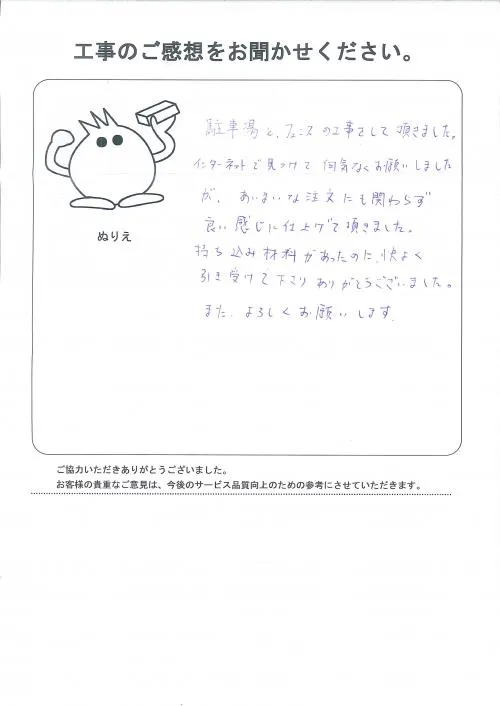 工事のご感想をお聞かせください。
駐車場と、フェンスの工事をして頂きました。
インターネットで見つけて何気なくお願いしました
が、あいまいな注文にも関わらず
良い感じに仕上げて頂きました。
持ち込み材料があったのに、快よく
引き受けて下さりありがとうございました。
また、よろしくお願いします。
ぬりえ
ご協力いただきありがとうございました。
お客様の貴重なご意見は、今後のサービス品質向上のための参考にさせていただきます。